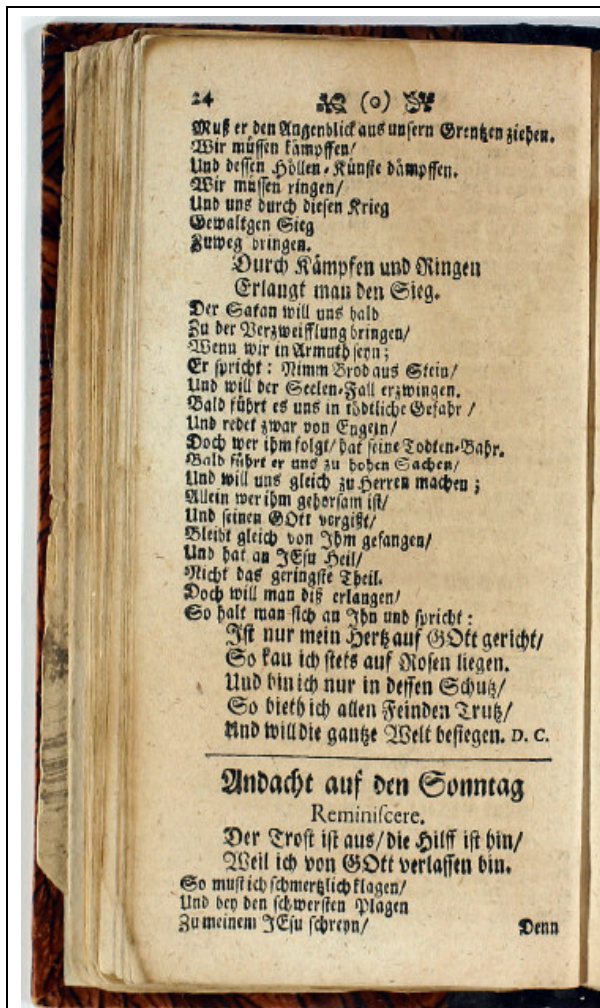 24 (o)
Muß er den Augenblick aus unsern Grentzen ziehen.
Wir müssen kämpffen/
Und dessen Höllen-Künste dämpffen.
Wir müssen ringen/
Und uns durch diesen Krieg
Gewaltgen Sieg
Zuweg bringen.
Durch Kämpfen und Ringen
Erlangt man den Sieg.
Der Satan will uns bald
Zu der Verzweifflung bringen/
Wenn wir in Armuth seyn;
Er spricht: Nimm Brod aus Stein/
Und will der Seelen-Fall erzwingen.
Bald führt es uns in tödtliche Gefahr /
Und redet zwar von Engeln/
Doch wer ihm folgt/ hat seine Todten-Bahr.
Bald führt er uns zu hohen Sachen/
Und will uns gleich zu Herren machen ;
Allein wer ihm gehorsam ist/
Und seinen GOtt vergißt/
Bleibt gleich von Ihm gefangen/
Und hat an JEsu Heil/
Nicht das geringste Theil.
Doch will man diß erlangen/
So halt man sich an Ihn und spricht:
Ist nur mein Hertz auf GOtt gericht/
So kan ich stets auf Rosen liegen.
Und bin ich nur in dessen Schutz/
So bieth ich allen Feinden Trutz/
Und will die gantze Welt besiegen. D. C.
Andacht auf den Sonntag
Reminiscere.
Der Trost ist aus/ die Hilff ist hin/
Weil ich von GOtt verlassen bin.
So must ich schmertzlich klagen/
Und bey den schwersten Plagen
Zu meinem JEsu schreyn/
Denn